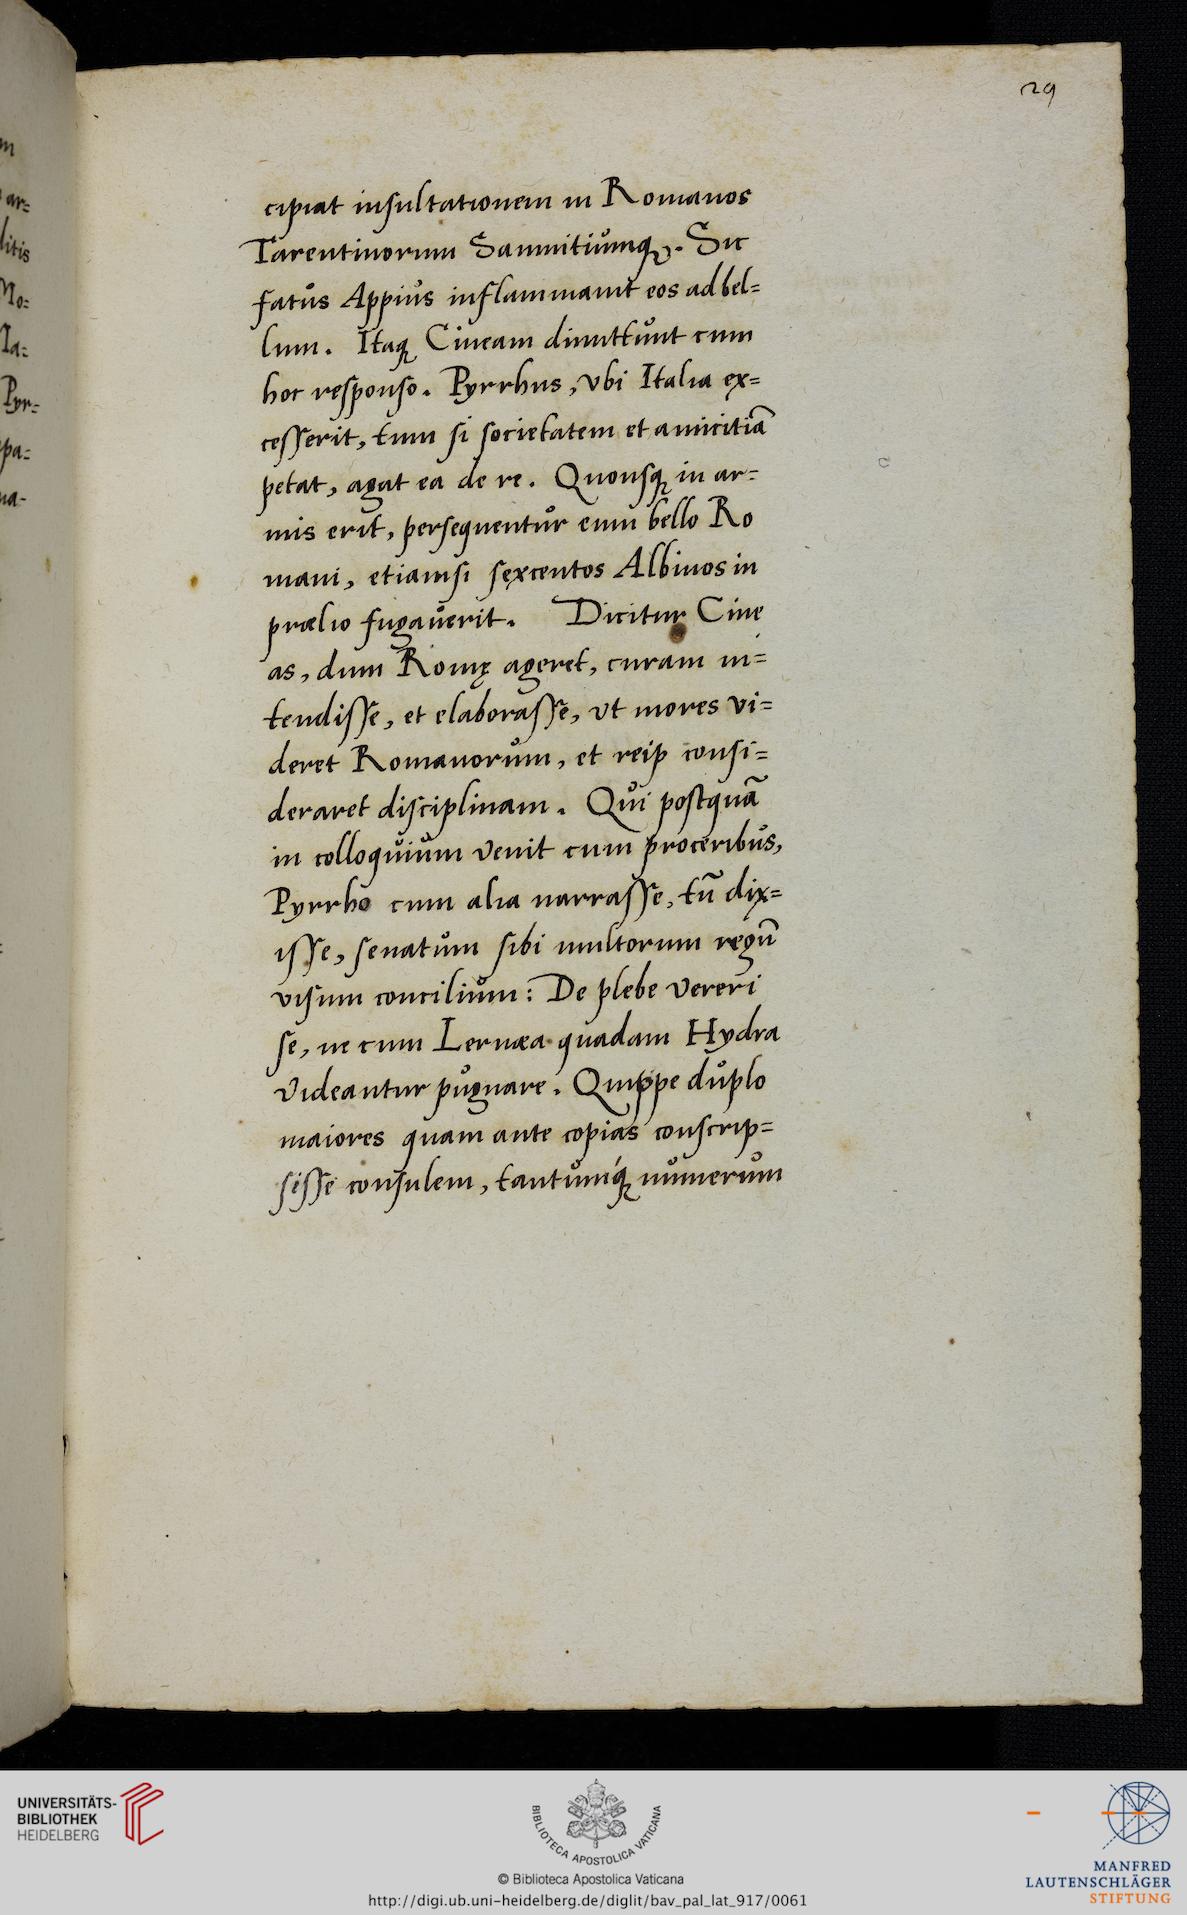 29
cipiat insultationem in Romanos
Tarentinorum Samnitiumq₃. Sic
fatus Appius inflammavit eos ad bel=
lum. Itaq₃ Cineam dimittunt cum
hoc responso. Pyrrhus, ubi Italia ex=
cesserit, tum si societatem et amicitiā
petat, agat ea de re. Quousq₃ in ar=
mis erit, persequentur eum bello Ro
mani, etiamsi sexcentos Albinos in
prælio fugaverit. Dicitur Cine
as, dum Romę ageret, curam in=
tendisse, et elaborasse, ut mores vi=
deret Romanorum, et reip consi=
deraret disciplinam. Qui postquā
in colloquium venit cum proceribus,
Pyrrho cum alia narrasse, tū dix=
isse, senatum sibi multorum regū
visum concilium: De plebe vereri
se, ne cum Lernæa quadam Hydra
videantur pugnare. Quippe duplo
maiores quam ante copias conscrip=
sisse consulem, tantumq́₃ numerum
m
ar=
litis
Mo=
Ia=
Pyr=
pa=
na-
UNIVERSITÄTS-
BIBLIOTHEK
HEIDELBERG
BIBLIOTECA APOSTOLICA VATICANA
© Biblioteca Apostolica Vaticana
http://digi.ub.uni-heidelberg.de/diglit/bav_pal_lat_917/0061
MANFRED
LAUTENSCHLÄGER
STIFTUNG